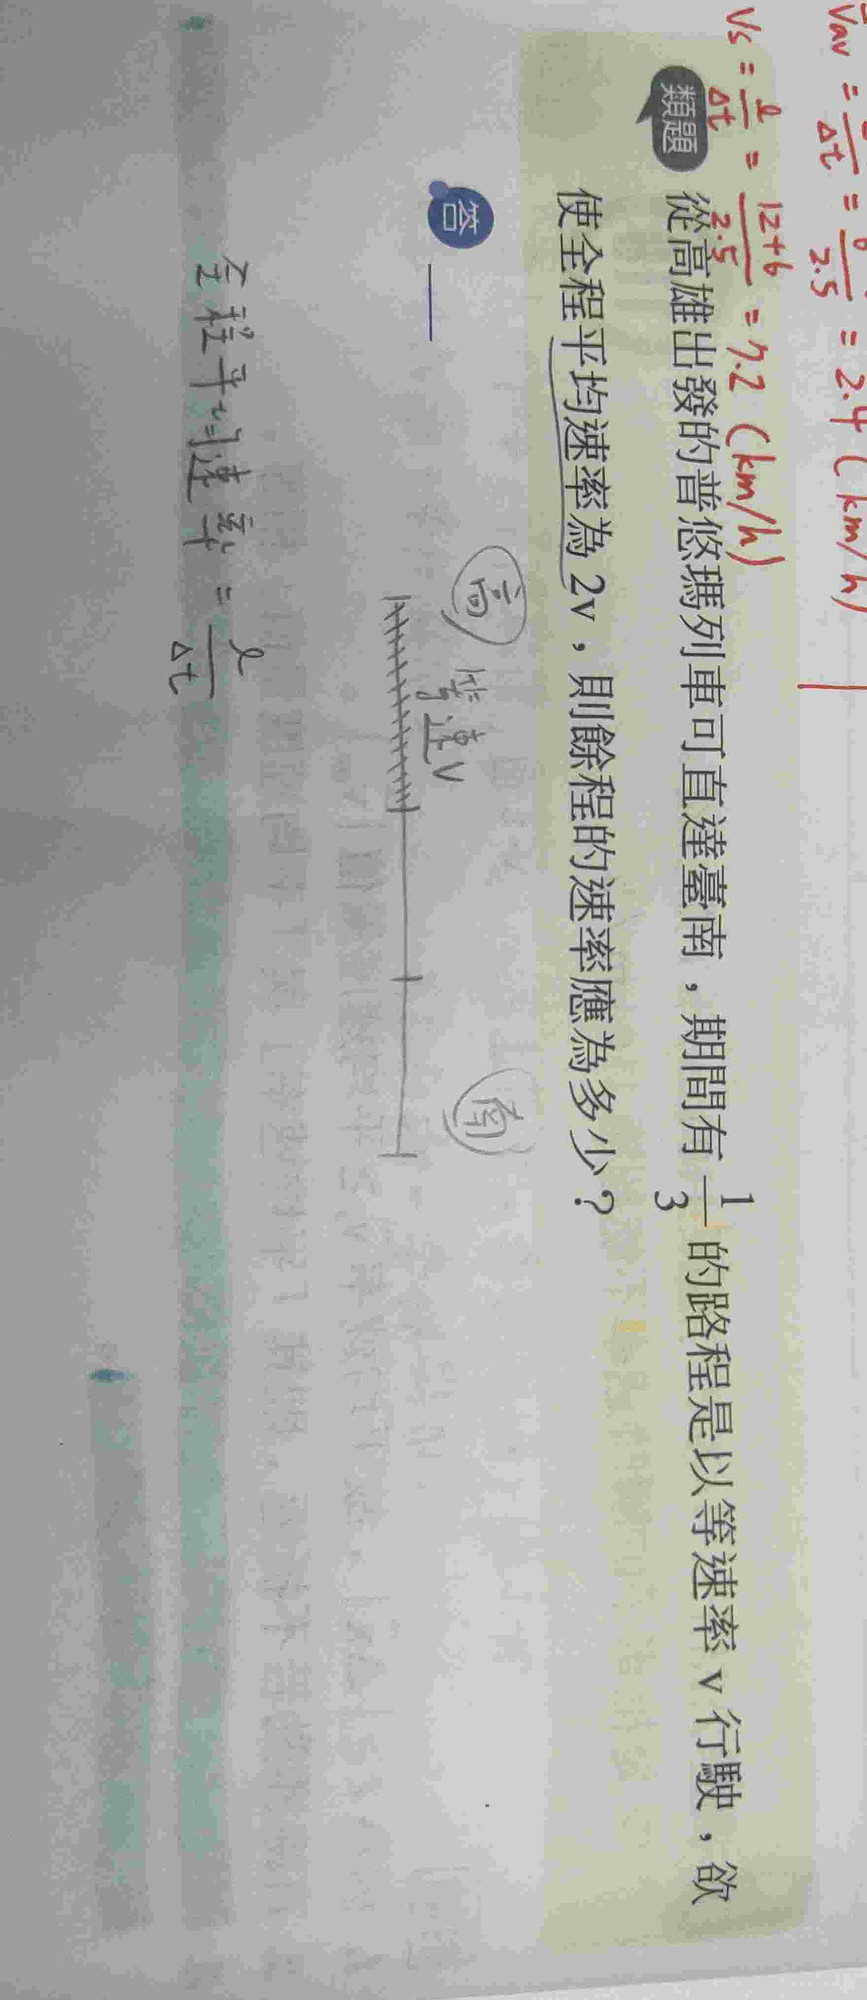 Vav = — = — = 2.4 (km/h)
Δt 2.5
Vs = ℓ/Δt = 12+6/2.5 = 7.2 (km/h)
類題 從高雄出發的普悠瑪列車可直達臺南，期間有 1/3 的路程是以等速率 v 行駛，欲
使全程平均速率為 2v，則餘程的速率應為多少？
答
高 南
等速V
全程平均速率 = ℓ/Δt